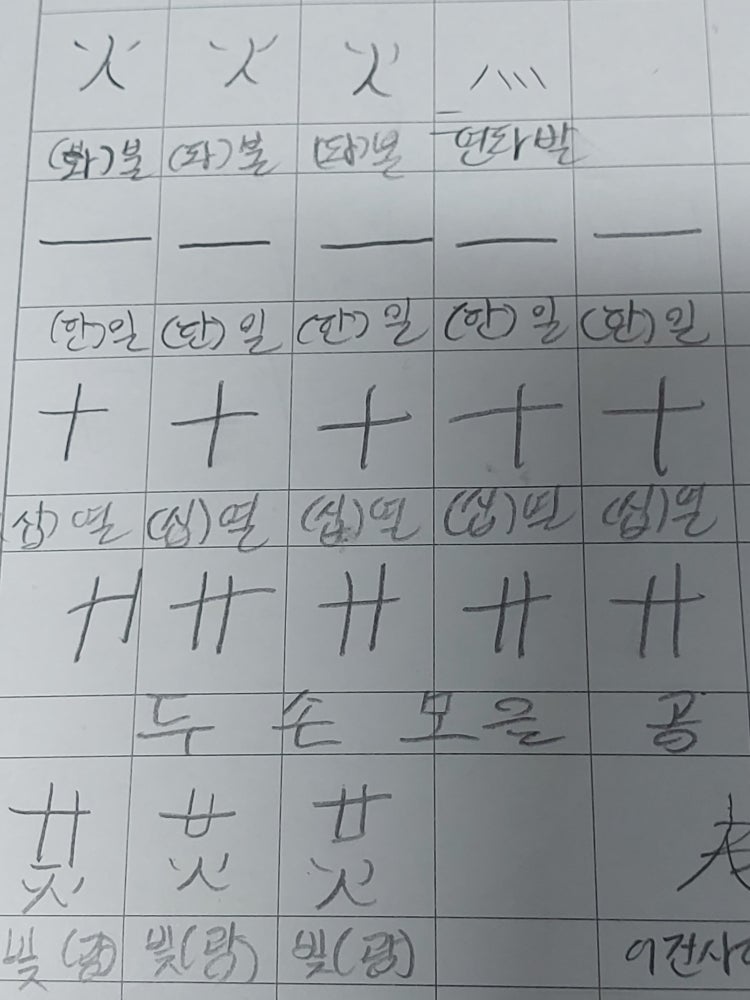 火 火 火 灬
(화)불 (화)불 (화)불 연화발
一 一 一 一 一
(한)일 (한)일 (한)일 (한)일 (한)일
十 十 十 十 十
(십)열 (십)열 (십)열 (십)열 (십)열
廾 廾 廾 廾 廾
두 손 모을 공
빛(광) 빛(광) 빛(광)